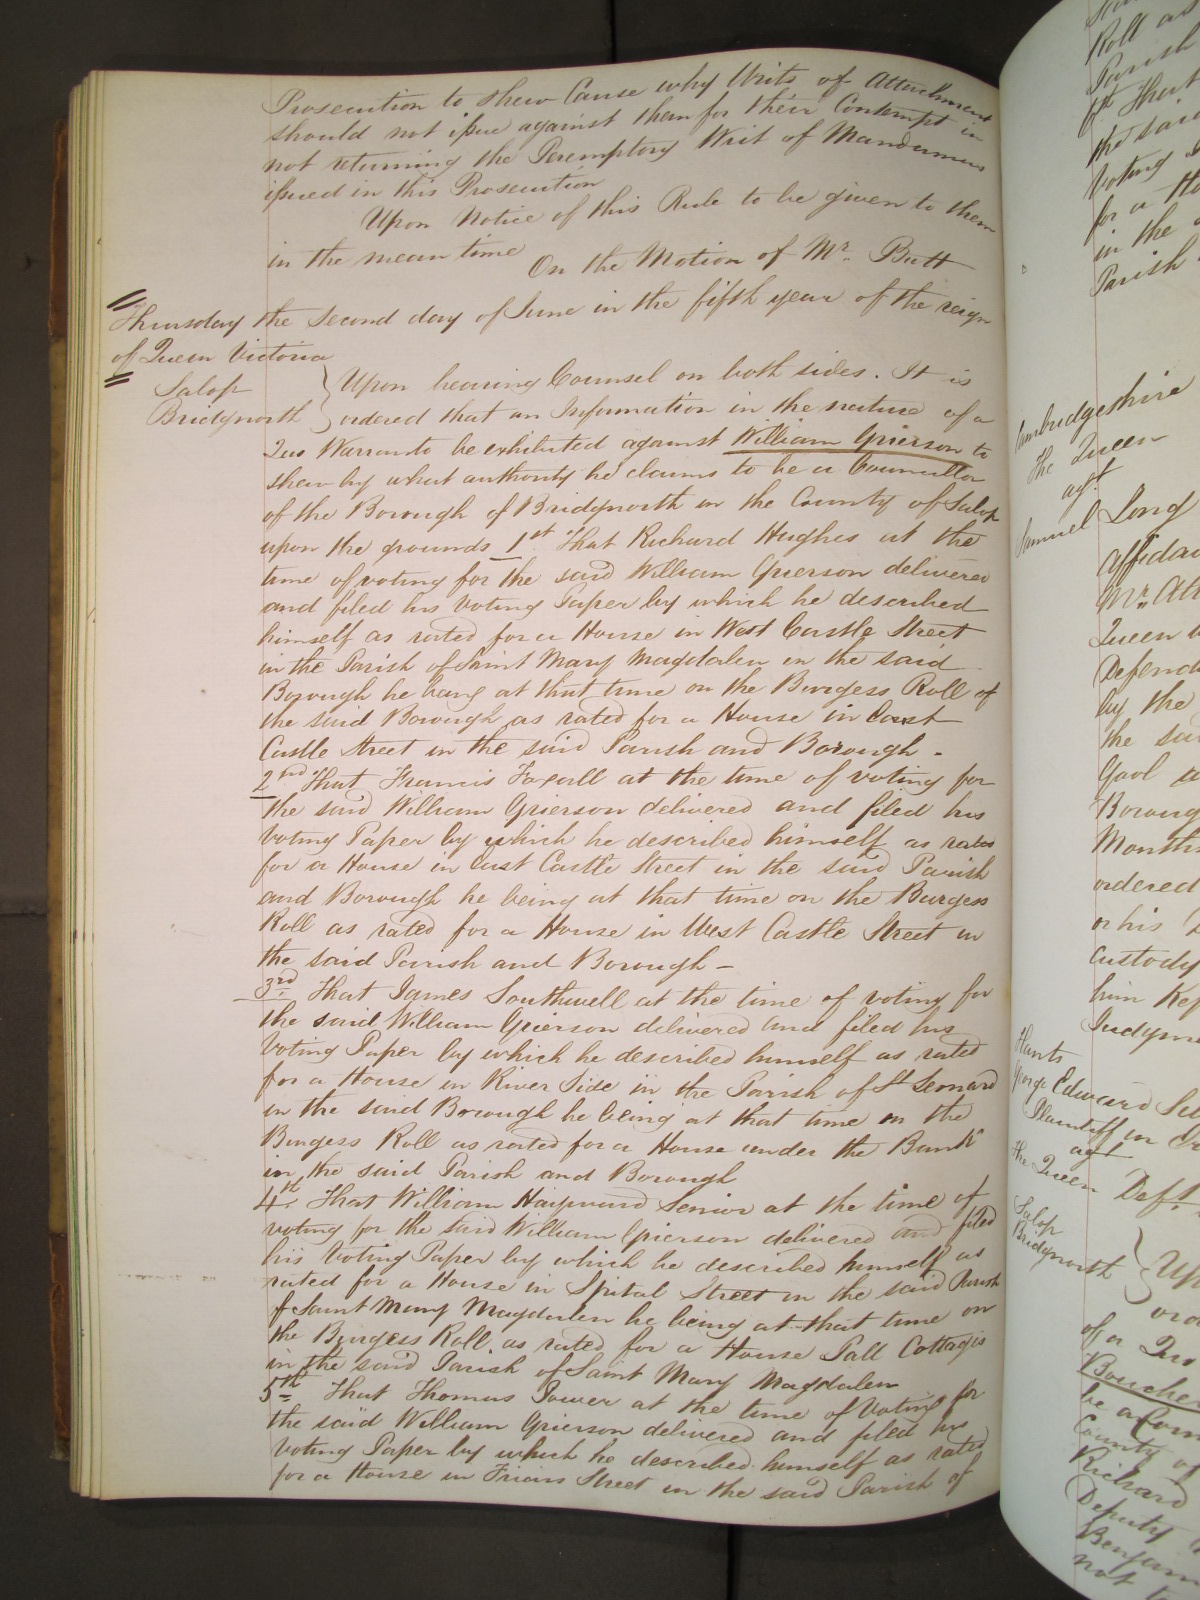 Prosecution to shew Cause why Writs of Attachment
should not issue against them for their Contempt in
not returning the Peremptory Writ of Mandamus
issued in this Prosecution
Upon Notice of this Rule to be given to them
in the mean time
On the Motion of Mr. Butt
Thursday the Second day of June in the fifth year of the reign
of Queen Victoria
Salop
Bridgnorth
Upon hearing Counsel on both sides. It is
ordered that an Information in the nature of a
Quo Warranto be exhibited against William Grierson to
shew by what authority he claims to be a Councillor
of the Borough of Bridgnorth in the County of Salop
upon the grounds 1st That Richard Hughes at the
time of voting for the said William Grierson delivered
and filed his Voting Paper by which he described
himself as rated for a House in West Castle Street
in the Parish of Saint Mary Magdalen in the said
Borough he being at that time on the Burgess Roll of
the said Borough as rated for a House in East
Castle Street in the said Parish and Borough -
2nd That Francis Foxall at the time of voting for
the said William Grierson delivered and filed his
Voting Paper by which he described himself as rated
for a House in East Castle Street in the said Parish
and Borough he being at that time on the Burgess
Roll as rated for a House in West Castle Street in
the said Parish and Borough -
3rd That James Southwell at the time of voting for
the said William Grierson delivered and filed his
Voting Paper by which he described himself as rated
for a House in River Side in the Parish of St Leonard
in the said Borough he being at that time on the
Burgess Roll as rated for a House under the Bank
in the said Parish and Borough
4th That William Hayward Senior at the time of
voting for the said William Grierson delivered and filed
his Voting Paper by which he described himself as
rated for a House in Spital Street in the said Parish
of Saint Mary Magdalen he being at that time on
the Burgess Roll as rated for a House Pall Cottages
in the said Parish of Saint Mary Magdalen
5th That Thomas Power at the time of Voting for
the said William Grierson delivered and filed his
Voting Paper by which he described himself as rated
for a House in Friars Street in the said Parish of
Roll as
Parish
That
the said
Voting
for a Ho
in the
Parish
Cambridgeshire
The Queen
agt
Samuel Long
Affidav
Mr. Att
Queen
Defend
by the
the sa
Gaol
Boroug
Months
ordered
or his
Custody
him Kep
Judgme
Hants
George Edward
Plaintiff in
agt
The Queen Deft.
Salop
Bridgnorth
Up
ord
of a Quo
Boucher
be a Coun
County of
Richard
Deputy
Benjam
not